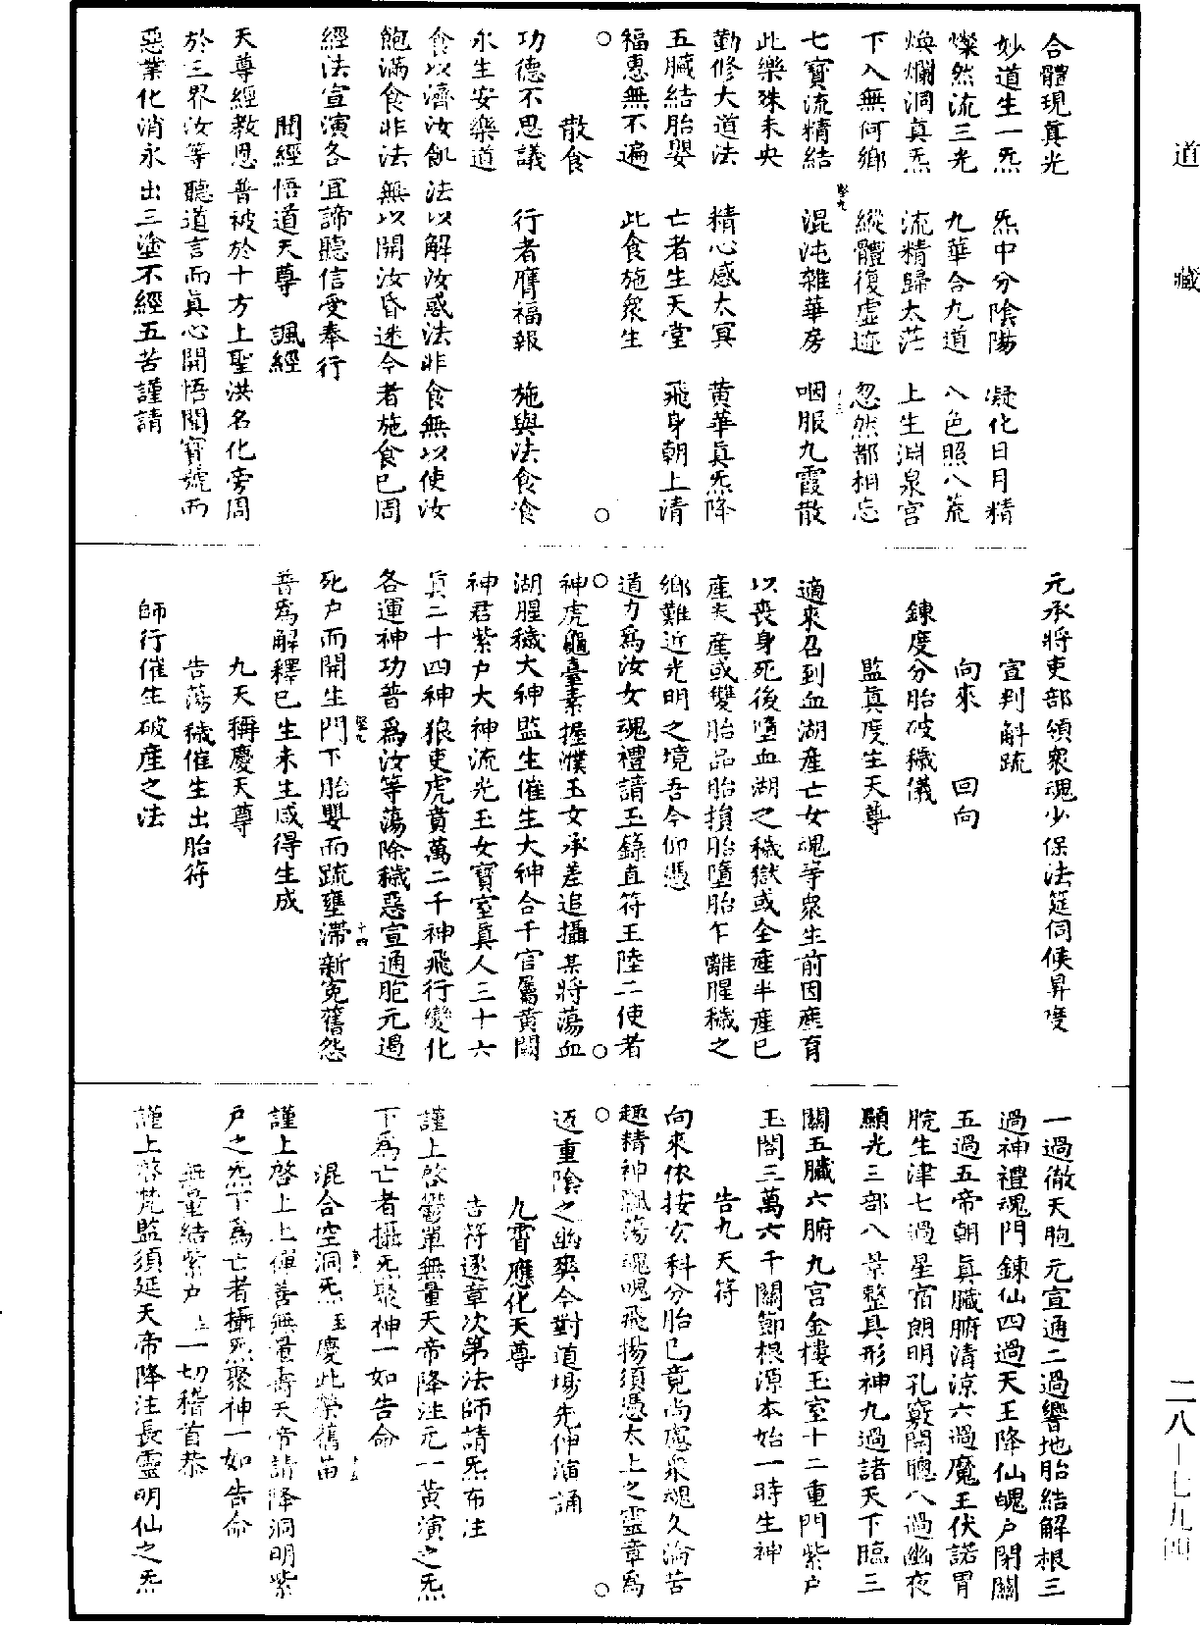 道藏
合體現真光
妙道生一炁　炁中分陰陽　凝化日月精
燦然流三光　九華合九道　八色照八荒
煥爛洞真炁　流精歸太茫　上生淵泉宮
下入無何鄉　縱體復虛迹　忽然都相忘
七寶流精結　混沌雜華房　咽服九霞散
此樂殊未央
勤修大道法　精心感太冥　黃華真炁降
五臟結胎嬰　亡者生天堂　飛身朝上清
福惠無不遍　此食施衆生
○　○
散食
功德不思議　行者膺福報　施與法食飡
永生安樂道
食以濟汝飢法以解汝惑法非食無以使汝
飽滿食非法無以開汝昏迷今者施食已周
經法宣演各宜諦聽信受奉行
聞經悟道天尊　諷經
天尊經教恩普被於十方上聖洪名化旁周
於三界汝等聽道言而真心開悟聞寶號而
惡業化消永出三塗不經五苦謹請
元承將吏部領衆魂少保法筵伺候昇度
宣判斛疏
向來　回向
鍊度分胎破穢儀
監真度生天尊
適來召到血湖產亡女魂等衆生前因產育
以喪身死後墮血湖之穢獄或全產半產已
產未產或雙胎品胎損胎墮胎乍離腥穢之
鄉難近光明之境吾今仰憑
道力爲汝女魂禮請玉籙直符王陸二使者
○　○
神虎龜臺素握濮玉女承差追攝某將蕩血
湖腥穢大神監生催生大神合千官屬黃闕
神君紫戶大神流光玉女寶室真人三十六
真二十四神狼吏虎賁萬二千神飛行變化
各運神功普爲汝等蕩除穢惡宣通胞元遏
死戶而開生門下胎嬰而疏壅滯新冤舊怨
善爲解釋已生未生咸得生成
九天稱慶天尊
告蕩穢催生出胎符
師行催生破產之法
一過徹天胞元宣通二過響地胎結解根三
過神禮魂門鍊仙四過天王降仙魄戶閉關
五過五帝朝真臟腑清涼六過魔王伏諾胃
脘生津七過星宿朗明孔竅開聰八過幽夜
顯光三部八景整具形神九過諸天下臨三
關五臟六腑九宮金樓玉室十二重門紫戶
玉閤三萬六千關節根源本始一時生神
告九天符
向來依按玄科分胎已竟尚慮衆魂久淪苦
趣精神飄蕩魂魄飛揚須憑太上之靈章爲
○　○
返重陰之幽爽今對道場先伸演誦
九霄應化天尊
告符逐章次第法師請炁布注
謹上啓鬱單無量天帝降注元一黃演之炁
下爲亡者攝炁聚神一如告命
混合空洞炁　慶此榮舊苗
謹上啓上上禪善無量壽天帝請降洞明紫
戶之炁下爲亡者攝炁聚神一如告命
無量結紫戶　一切稽首恭
謹上啓梵監須延天帝降注長靈明仙之炁
二八—七九四